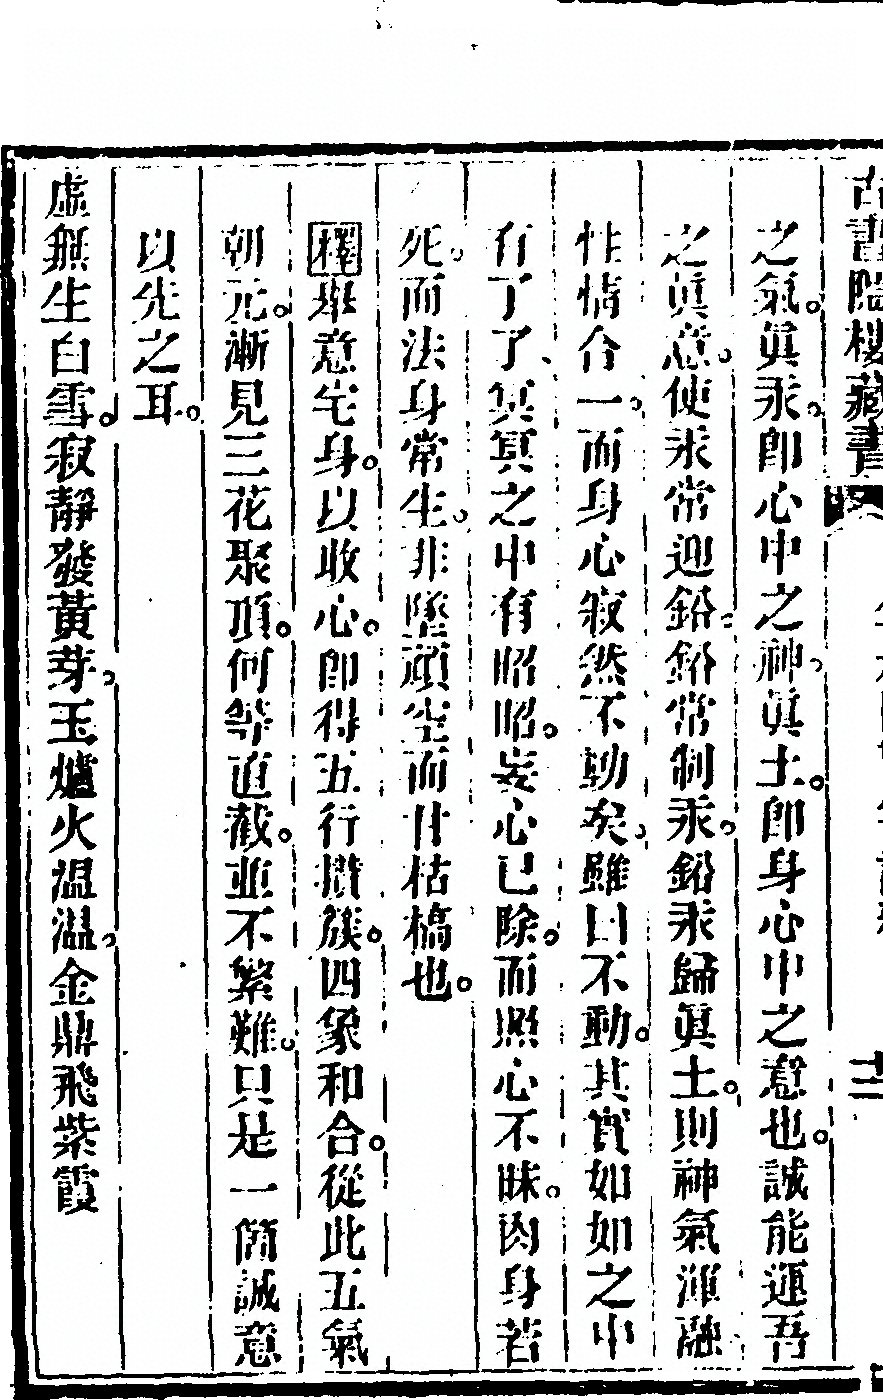 古書隱樓藏書
十二
之氣。眞汞。卽心中之神。眞土。卽身心中之意也。誠能運吾
之眞意。使汞常迎鉛。鉛常制汞。鉛汞歸眞土。則神氣渾融。
性情合一。而身心寂然不動矣。雖曰不動。其實如如之中
有了了、冥冥之中有昭昭。妄心已除。而照心不昧。肉身若
死。而法身常生。非墮頑空而甘枯槁也。
釋擧意宅身。以收心。卽得五行攢簇。四象和合。從此五氣
朝元。漸見三花聚頂。何等直截。並不繁難。只是一箇誠意
以先之耳。
虛無生白雪。寂靜發黃芽。玉爐火溫溫。金鼎飛紫霞